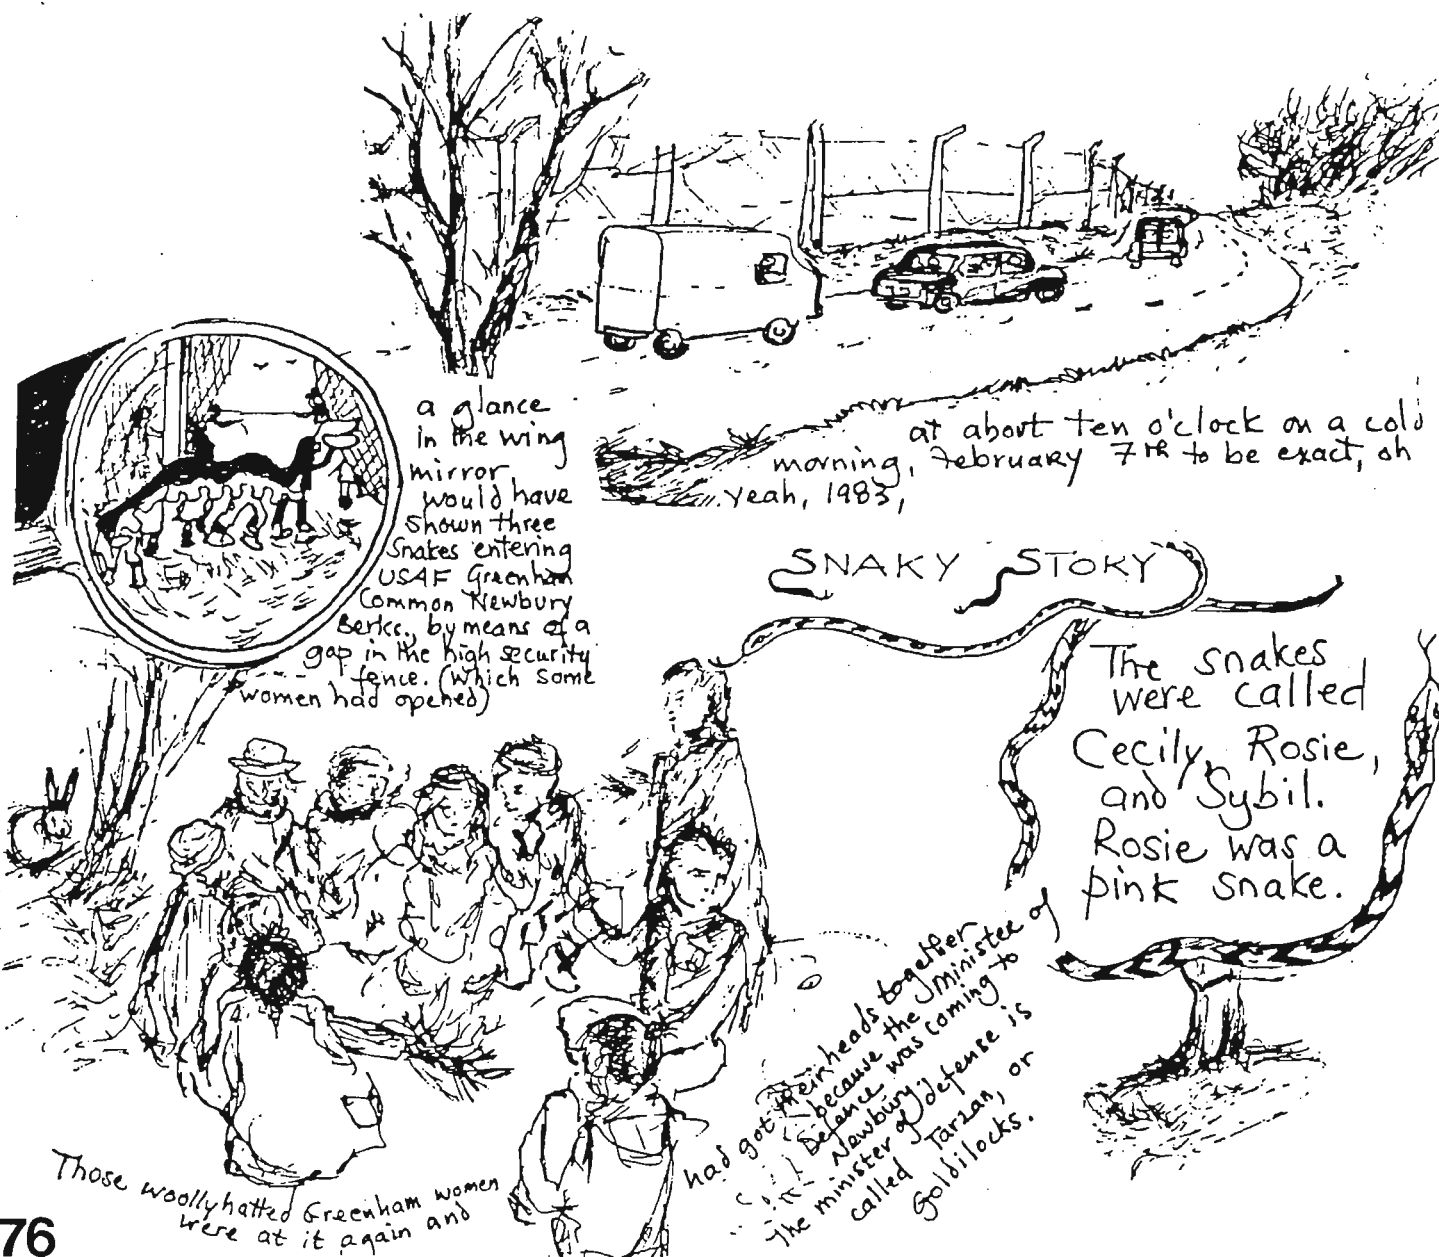 at about ten o'clock on a cold
morning, February 7th to be exact, oh
yeah, 1983,
a glance
in the wing
mirror
would have
shown three
snakes entering
USAF Greenham
Common Newbury
Berks., by means of a
gap in the high security
fence. (which some
women had opened)
SNAKY STORY
The snakes
were called
Cecily, Rosie,
and Sybil.
Rosie was a
pink snake.
Those woollyhatted Greenham women
were at it again and
had got their heads together
because the Minister of
Defence was coming to
Newbury
The minister of defense is
called Tarzan, or
Goldilocks.
76